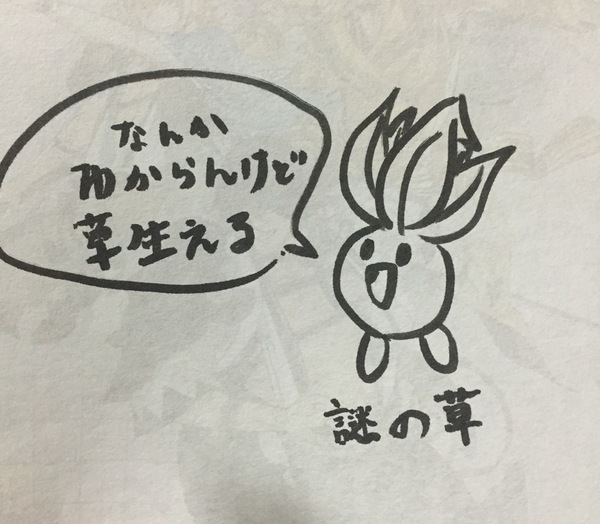 なんか
わからんけど
草生える
謎の草